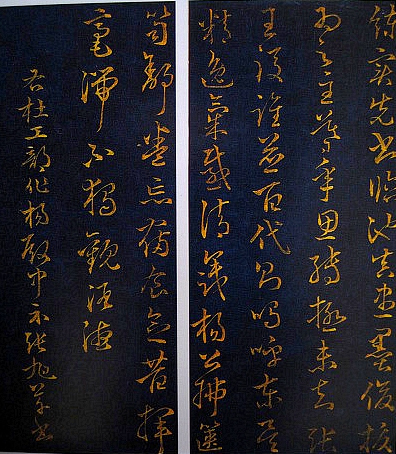 練實先書臨池真盡墨俊拔
為之主暮年思轉極未知張
王後誰並百代則嗚呼東吳
精逸氣感清識楊公拂篋
笥舒卷忘寢食念昔揮
毫端不獨觀酒德
右杜工部作楊殿中示張旭草書